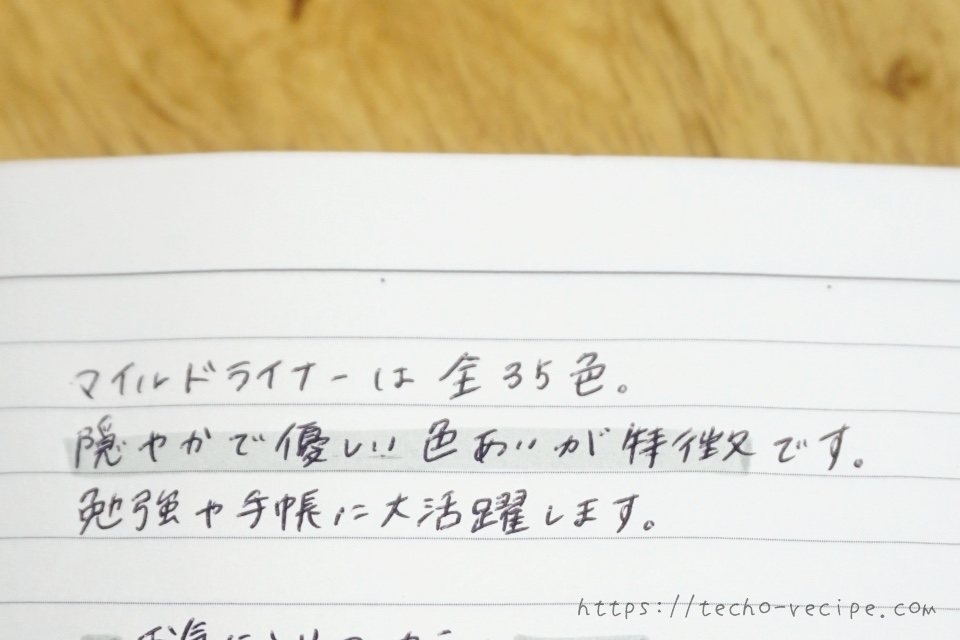 マイルドライナーは全35色。
隠やかで優しい色あいが特徴です。
勉強や手帳に大活躍します。
https://techo-recipe.com